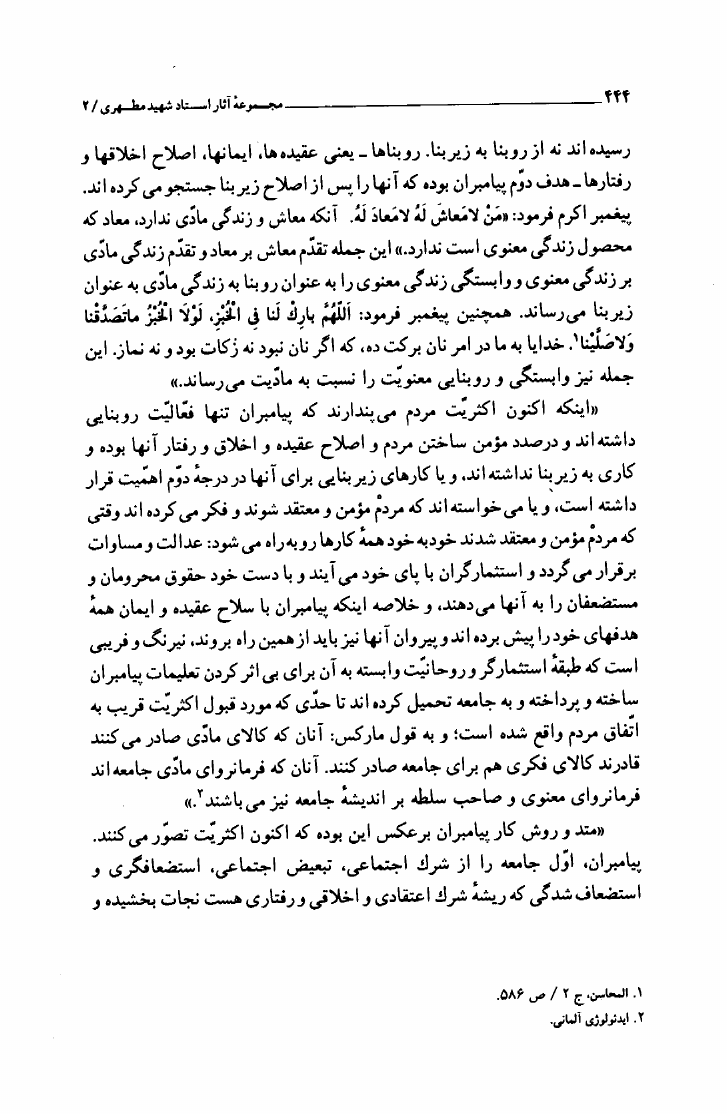 ۴۴۴ مجموعهٔ آثار استاد شهید مطهری / ۲
رسیده‌اند نه از روبنا به زیربنا. روبناها ـ یعنی عقیده‌ها، ایمانها، اصلاح اخلاقها و
رفتارها ـ هدف دوّم پیامبران بوده که آنها را پس از اصلاح زیربنا جستجو می‌کرده‌اند.
پیغمبر اکرم فرمود: «مَنْ لامَعاشَ لَهُ لامَعادَ لَهُ. آنکه معاش و زندگی مادّی ندارد، معاد که
محصول زندگی معنوی است ندارد.» این جمله تقدّم معاش بر معاد و تقدّم زندگی مادّی
بر زندگی معنوی و وابستگی زندگی معنوی را به عنوان روبنا به زندگی مادّی به عنوان
زیربنا می‌رساند. همچنین پیغمبر فرمود: اَللّهُمَّ بارِكْ لَنا فِی الْخُبْزِ، لَوْلَا الْخُبْزُ ماتَصَدَّقْنا
وَلاصَلَّیْنا۱. خدایا به ما در امر نان برکت ده، که اگر نان نبود نه زکات بود و نه نماز. این
جمله نیز وابستگی و روبنایی معنویّت را نسبت به مادّیت می‌رساند.»
«اینکه اکنون اکثریّت مردم می‌پندارند که پیامبران تنها فعّالیّت روبنایی
داشته‌اند و درصدد مؤمن ساختن مردم و اصلاح عقیده و اخلاق و رفتار آنها بوده و
کاری به زیربنا نداشته‌اند، و یا کارهای زیربنایی برای آنها در درجهٔ دوّم اهمّیت قرار
داشته است، و یا می‌خواسته‌اند که مردمْ مؤمن و معتقد شوند و فکر می‌کرده‌اند وقتی
که مردمْ مؤمن و معتقد شدند خودبه‌خود همهٔ کارها روبه‌راه می‌شود: عدالت و مساوات
برقرار می‌گردد و استثمارگران با پای خود می‌آیند و با دست خود حقوق محرومان و
مستضعفان را به آنها می‌دهند، و خلاصه اینکه پیامبران با سلاح عقیده و ایمان همهٔ
هدفهای خود را پیش برده‌اند و پیروان آنها نیز باید از همین راه بروند، نیرنگ و فریبی
است که طبقهٔ استثمارگر و روحانیّت وابسته به آن برای بی‌اثر کردن تعلیمات پیامبران
ساخته و پرداخته و به جامعه تحمیل کرده‌اند تا حدّی که مورد قبول اکثریّت قریب به
اتّفاق مردم واقع شده است؛ و به قول مارکس: آنان که کالای مادّی صادر می‌کنند
قادرند کالای فکری هم برای جامعه صادر کنند. آنان که فرمانروای مادّی جامعه‌اند
فرمانروای معنوی و صاحب سلطه بر اندیشهٔ جامعه نیز می‌باشند۲.»
«متد و روش کار پیامبران برعکس این بوده که اکنون اکثریّت تصوّر می‌کنند.
پیامبران، اوّل جامعه را از شرك اجتماعی، تبعیض اجتماعی، استضعافگری و
استضعاف‌شدگی که ریشهٔ شرك اعتقادی و اخلاقی و رفتاری هست نجات بخشیده و
۱. المحاسن، ج ۲ / ص ۵۸۶.
۲. ایدئولوژی آلمانی.